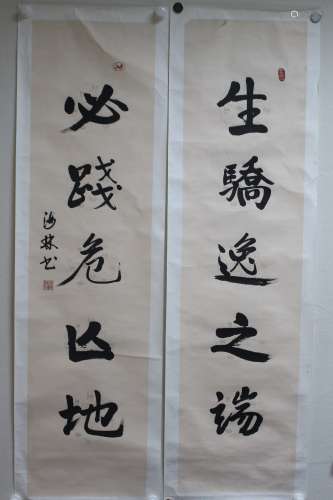 生驕逸之端
必踐危亡地
海林书